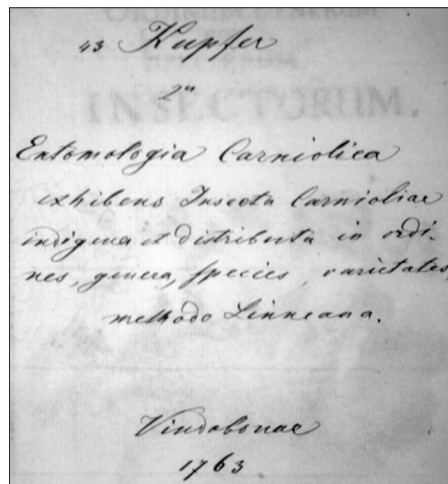 43 Kupfer
2"
Entomologia Carniolica
exhibens Insecta Carnioliae
indigena et distributa in ordi-
nes, genera, species, varietates,
methodo Linneana.
Vindobonae
1763
INSECTORUM.